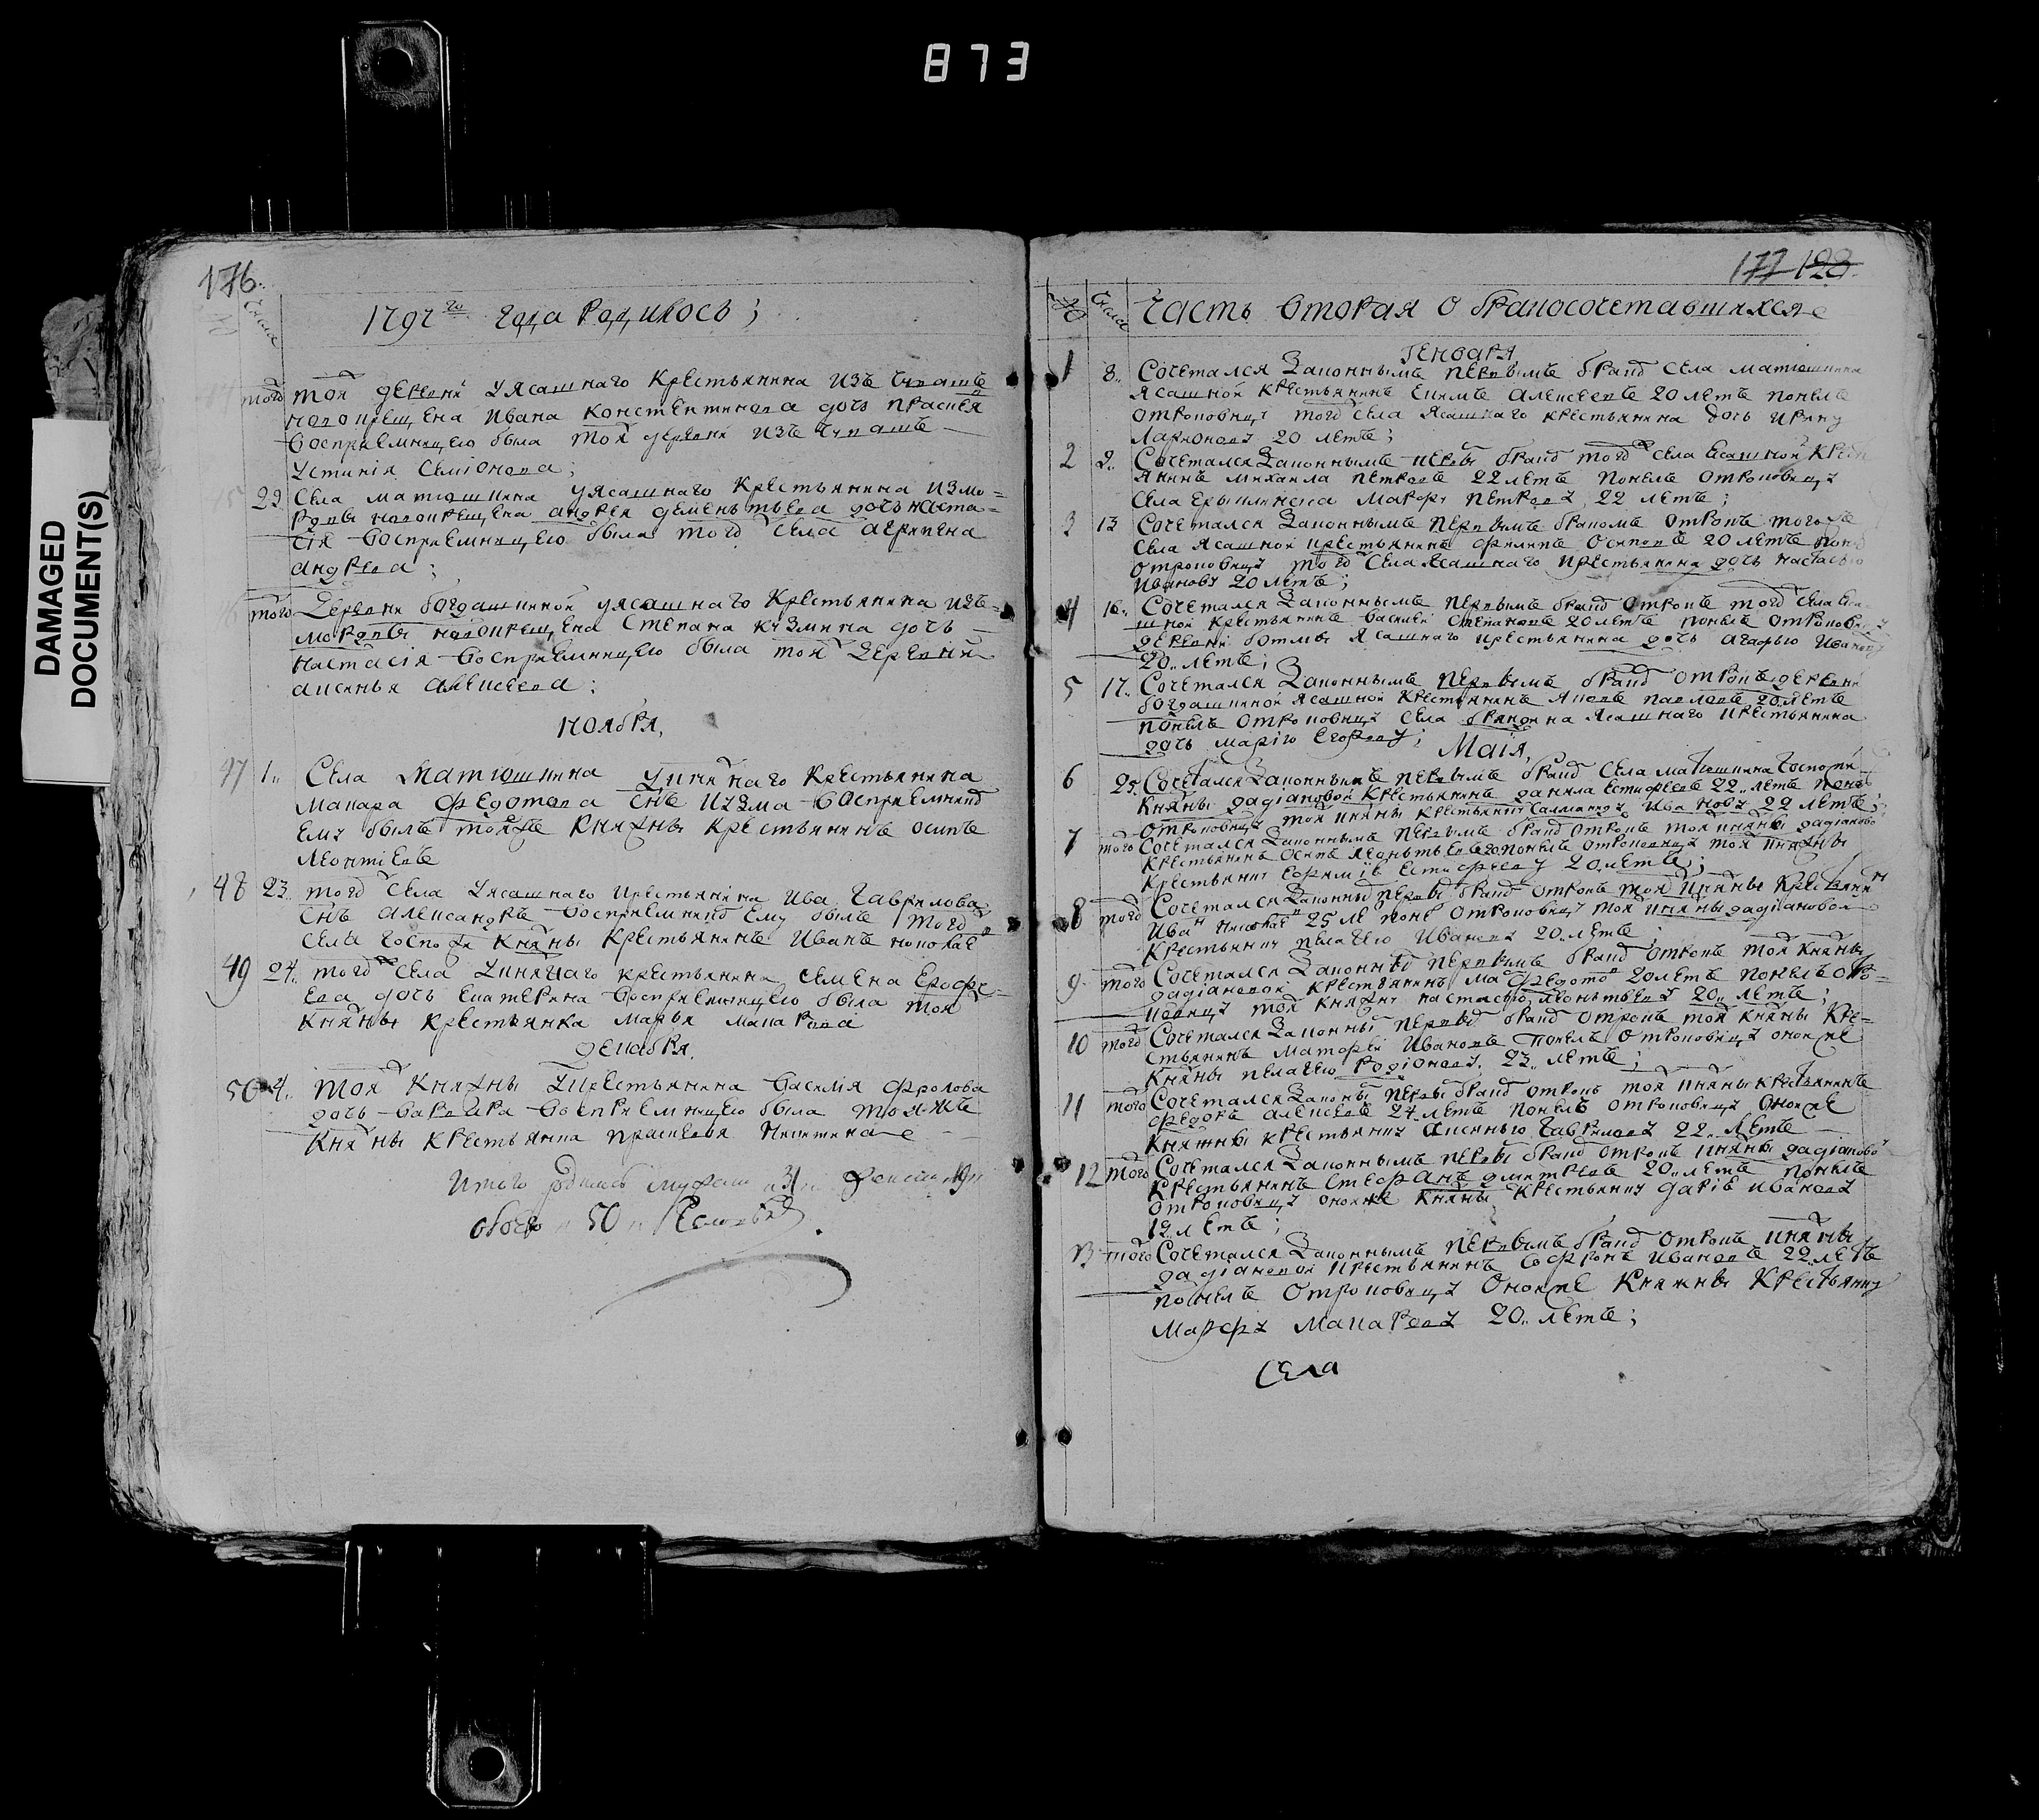 873
DAMAGED
DOCUMENT(S)
176
Числа
1792го года Родилось;
44 того той деревни уясашнаго крестьянина изъ чювашъ
новокрещена Ивана константинова дочь праскеа
восприемницею была той деревни изъ чювашъ
устиния семионова;
45 22 Села матюшкина уясашнаго крестьянина измо=
рдвы новокрещена андрея дементьева дочь наста=
сія восприемницею была того села агрипена
андрева;
46 того деревни богдашкиной уясашнаго крестьянина изъ=
мордвы новокрещена степана кузмина дочь
настасія восприемницею была той деревни
аксинья алексеева:
ноября,
47 1.. Села матюшкина крестьянина
макара федотова снъ кузма восприемникъ
ему былъ тояже княжны крестьянинъ осипъ
леонтіевъ
48 23.. того села уясашнаго крестьянина Ива гаврилова
снъ александръ восприемникъ ему былъ того
села госпожи княжны крестьянинъ Иванъ николаев
49 24.. того села крестьянина семена ерофе=
ева дочь екатерина восприемницею была той
княжны крестьянка марья макарова
декабря.
50 4.. той княжны укрестьянина василія фролова
дочь варвара восприемницею была тояжъ
княжны крестьянка праскевя никитина
Итого родилось мужеска 31 женска 19
обоего 50 человекъ
177 123.
№ числа Часть вторая о бракосочетавшихся
Генваря
1 8.. Сочетался законнымъ первымъ бракъ села матюшкина
ясашной крестьянинъ екимъ алексеевъ 20 летъ понелъ
отроковицу того села ясашнаго крестьянина дочь ирину
ларионову 20 летъ;
2 9.. Сочетался законнымъ первы бракъ того села ясашной крест
янинъ михаила петровъ 22 летъ понелъ отроковицу
села ерыклинска марфу петрову 22 летъ;
3 13 Сочетался законнымъ первымъ бракомъ отрокъ тогожъ
села ясашной крестьянинъ филипъ осиповъ 20 летъ поне
отроковицу того села ясашнаго крестьянина дочь настасью
иванову 20 летъ;
4 16.. Сочетался законнымъ первымъ бракъ отрокъ того села яса
шной крестьянинъ василей степановъ 20 летъ понелъ отроковицу
деревни ботмы ясашнаго крестьянина дочь агафью иванову
20.. летъ;
5 17.. Сочетался законнымъ первымъ бракъ отрокъ деревни
богдашкиной ясашной крестьянинъ яковъ павловъ 20 летъ
понелъ отроковицу села брянона ясашнаго крестьянина
дочь марію егорову;
Маія,
6 25. Сочетался законнымъ первымъ бракъ села матюшкина госпожи
княжны дадіановой крестьянинъ данила естифеевъ 22.. летъ понелъ
отроковицу той княжны крестьянину саламаниду иванову 22 летъ;
7 того Сочетался законнымъ первымъ бракъ отрокъ той княжны дадіаново
крестьянинъ осипъ леонтьевъ понелъ отроковицу той княжны
крестьянину ефимію естифееву 20.. летъ;
8 того Сочетался законны первы бракъ отрокъ той княжны крестьянин
иван николаев 25 ле поне отроковицу той княжны дадіановой
крестьянину пелагею иванову 20.. летъ;
9. того Сочетался законны первымъ бракъ отрокъ той княжны
дадіановой крестьянинъ ма федото 20 летъ понелъ отро=
ковицу той княжны настасью леонтьеву 20.. летъ;
10 того Сочетался законны первы бракъ отрокъ той княжны кре=
стьянинъ матфей ивановъ понелъ отроковицу оной же
княжны пелагею родіонову. 23.. летъ;
11 того Сочетался законны первы бракъ отрокъ той княжны крестьянинъ
федоръ алексеевъ 24 летъ понелъ отроковицу оной же
княжны крестьянину аксинью гаврилову 22.. летъ
12 того Сочетался законнымъ первы бракъ отрокъ княжны дадіаново
крестьянинъ стефанъ дмитреевъ 20.. летъ понелъ
отроковицу оной же княжны крестьянину дарію иванову
19.. летъ;
13 того Сочетался законнымъ первымъ бракъ отрокъ княжны
дадіановой крестьянинъ софронъ ивановъ 22 летъ
понелъ отроковицу оной же княжны крестьянину
марфу макарову 20.. летъ;
села